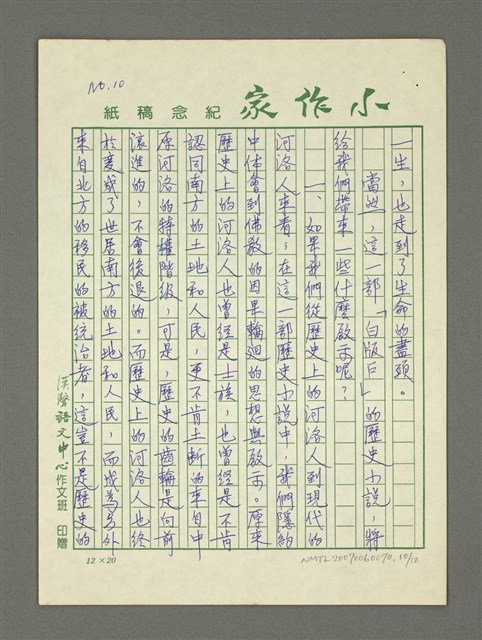 No.10
小作家紀念稿紙
一生，也走到了生命的盡頭。
當然，這一部「白版巨」的歷史小說，將
給我們帶來一些什麼啟示呢？
一、如果我們從歷史上的河洛人到現代的
河洛人來看；在這一部歷史小說中，我們隱約
中体會到佛教的因果輪迴的思想與啟示。原來
歷史上的河洛人也曾經是士族，也曾經是不肯
認同南方的土地和人民，更不肯土斷的來自中
原河洛的特權階級，可是，歷史的齒輪是向前
滾進的，不會後退的。而歷史上的河洛人也終
於變成了世居南方的土地和人民，而成為另外
來自北方的移民的被統治者，這豈不是歷史的
漢聲語文中心作文班 印贈
12×20
NMTL20070060070.10/12